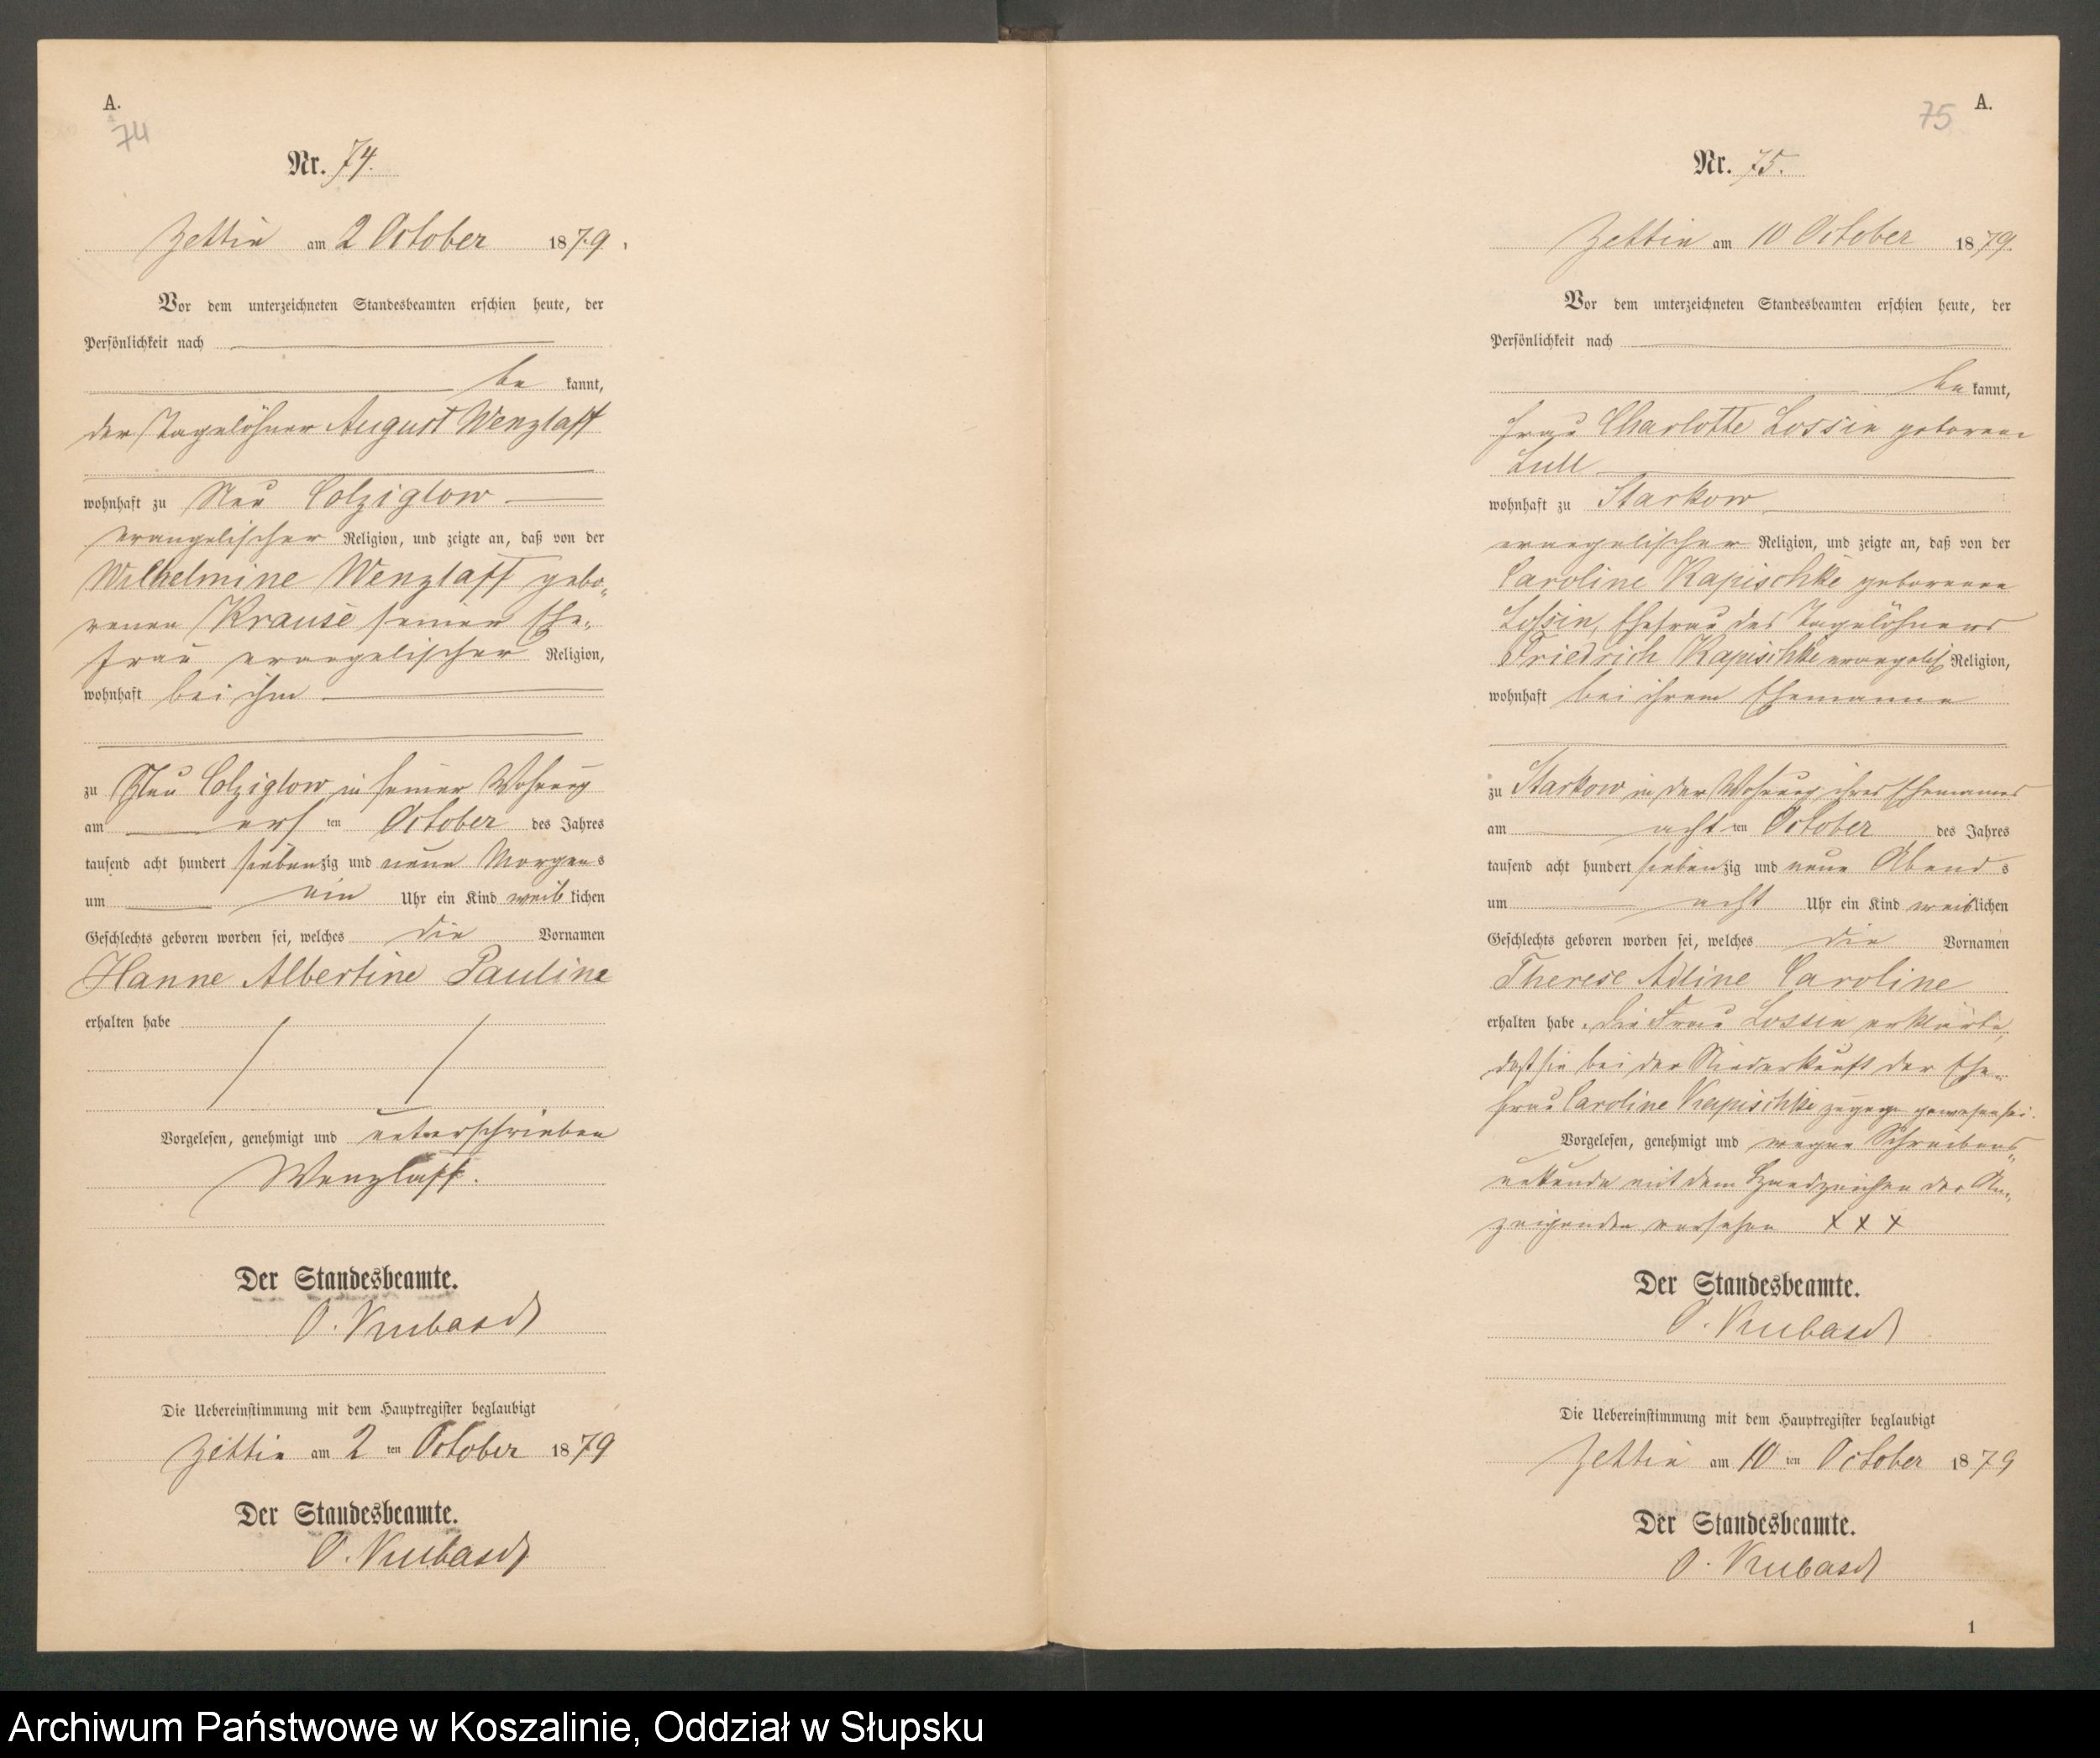 A.
74
Nr. 74.
Zettin am 2 October 1879.
Vor dem unterzeichneten Standesbeamten erschien heute, der
Persönlichkeit nach
be kannt,
der Tagelöhner August Wenzlaff
wohnhaft zu Neu Colziglow
evangelischer Religion, und zeigte an, daß von der
Wilhelmine Wenzlaff gebo-
renen Krause seiner Ehe-
frau evangelischer Religion,
wohnhaft bei ihm
zu Neu Colziglow in seiner Wohnung
am ers ten October des Jahres
tausend acht hundert siebenzig und neun Morgens
um ein Uhr ein Kind weiblichen
Geschlechts geboren worden sei, welches die Vornamen
Hanne Albertine Pauline
erhalten habe
Vorgelesen, genehmigt und unterschrieben
Wenzlaff.
Der Standesbeamte.
O. Kubasch
Die Uebereinstimmung mit dem Hauptregister beglaubigt
Zettin am 2 ten October 1879
Der Standesbeamte.
O. Kubasch
A.
75
Nr. 75.
Zettin am 10 October 1879.
Vor dem unterzeichneten Standesbeamten erschien heute, der
Persönlichkeit nach
be kannt,
Frau Charlotte Lossin geborene
Lull
wohnhaft zu Starkow
evangelischer Religion, und zeigte an, daß von der
Caroline Kapischke geborenen
Lossin, Ehefrau des Tagelöhners
Friedrich Kapischke evangelisch Religion,
wohnhaft bei ihrem Ehemanne
zu Starkow in der Wohnung ihres Ehemannes
am acht ten October des Jahres
tausend acht hundert siebenzig und neun Abends
um acht Uhr ein Kind weiblichen
Geschlechts geboren worden sei, welches die Vornamen
Therese Adline Caroline
erhalten habe. Die Frau Lossin erklärte,
daß sie bei der Niederkunft der Ehe-
frau Caroline Kapischke zugegen gewesen sei.
Vorgelesen, genehmigt und wegen Schreibens-
unkunde mit dem Handzeichen der An-
zeigenden versehen X X X
Der Standesbeamte.
O. Kubasch
Die Uebereinstimmung mit dem Hauptregister beglaubigt
Zettin am 10 ten October 1879
Der Standesbeamte.
O. Kubasch
1
Archiwum Państwowe w Koszalinie, Oddział w Słupsku